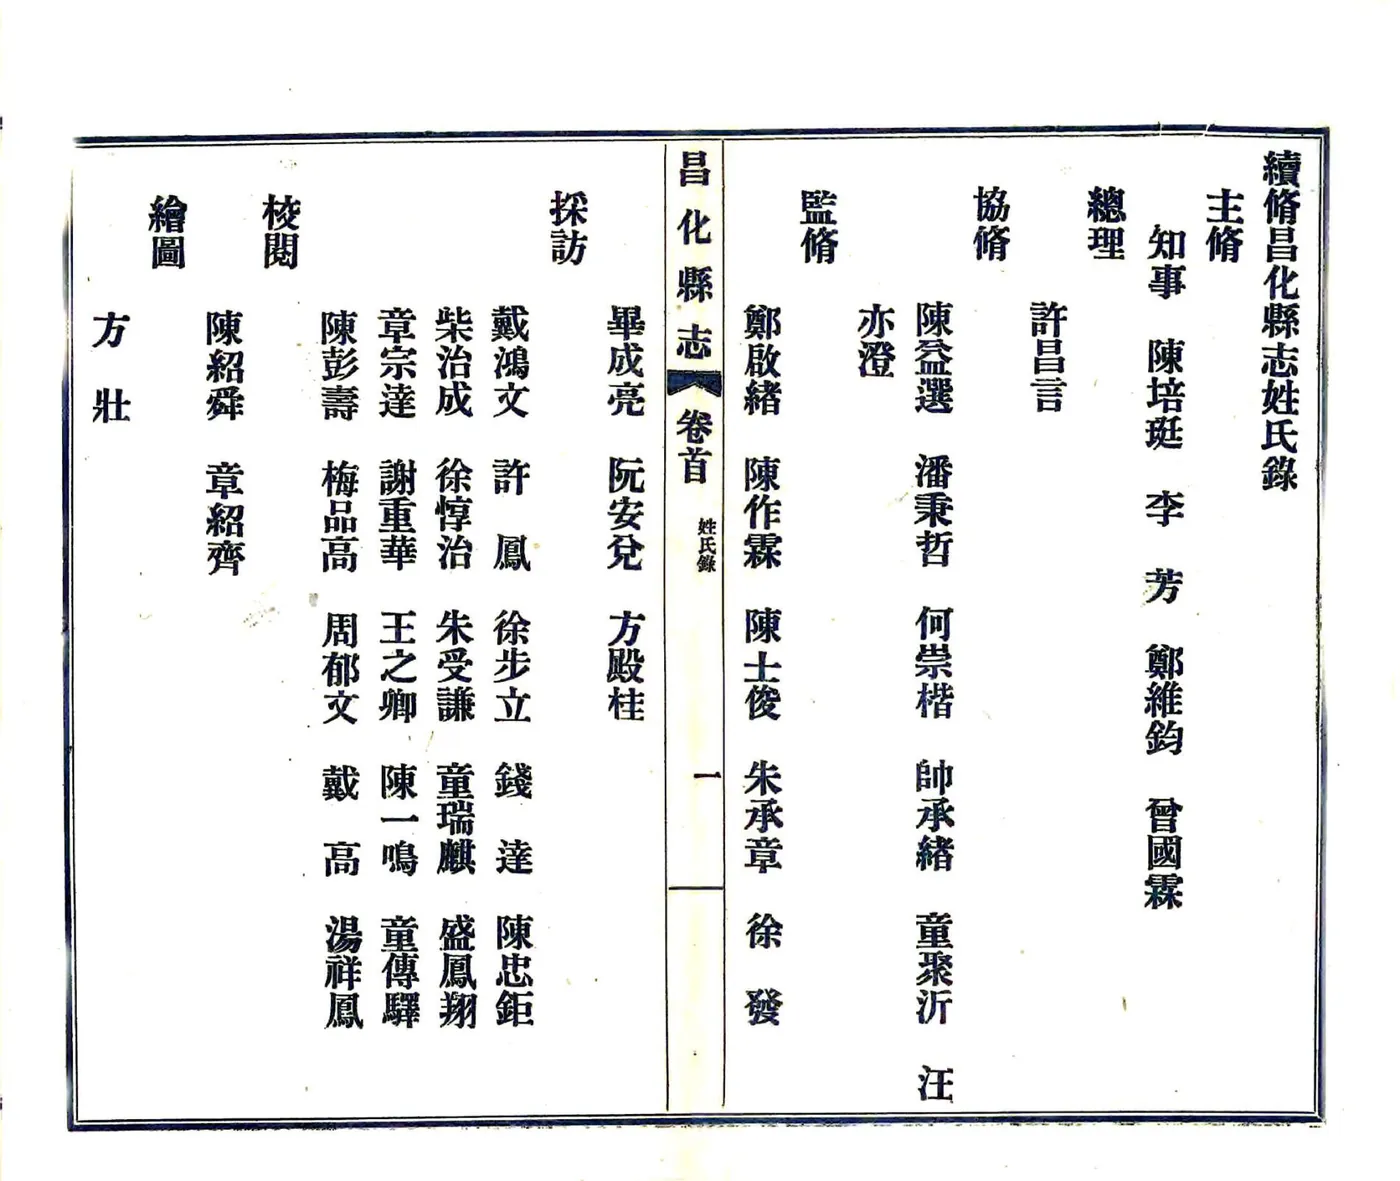 續脩昌化縣志姓氏錄
主脩
知事 陳培珽 李 芳 鄭維鈞 曾國霖
總理
許昌言
協脩
陳益選 潘秉哲 何崇楷 帥承緒 童聚沂 汪
亦澄
監脩
鄭啟緒 陳作霖 陳士俊 朱承章 徐 發
昌化縣志 卷首 姓氏錄 一
畢成亮 阮安兌 方殿桂
採訪
戴鴻文 許 鳳 徐步立 錢 達 陳忠鉅
柴治成 徐惇治 朱受謙 童瑞麒 盛鳳翔
章宗達 謝重華 王之卿 陳一鳴 童傳驛
陳彭壽 梅品高 周郁文 戴 高 湯祥鳳
校閱
陳紹舜 章紹齊
繪圖
方 壯